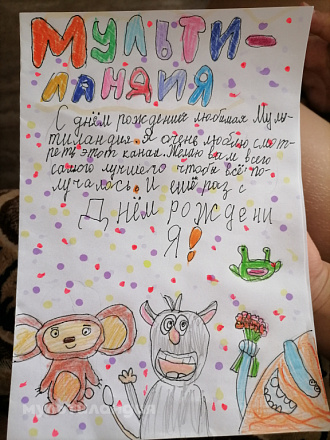 МУЛЬТИ-
ЛАНДИЯ
С днём рождений любимая Муль-
тиландия. Я очень люблю смот-
реть этот канал. Желаю вам всего
самого лучшего чтобы всё по-
лучалось. И ещё раз с
Днём рождени
Я!
мультиландия